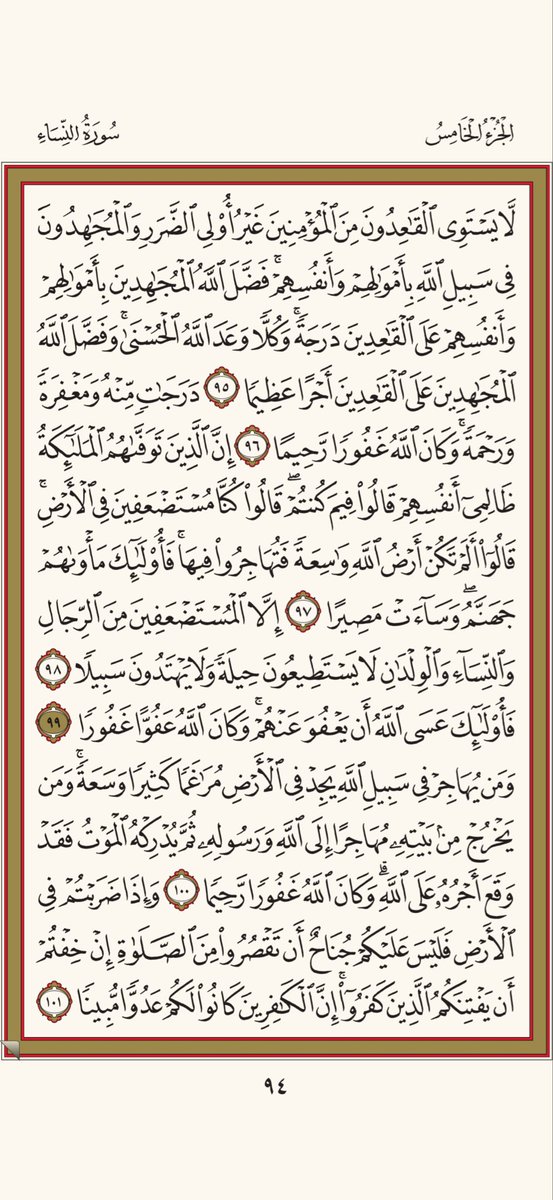 الجزء الخامس
سورة النساء
لَّا يَسْتَوِى ٱلْقَٰعِدُونَ مِنَ ٱلْمُؤْمِنِينَ غَيْرُ أُو۟لِى ٱلضَّرَرِ وَٱلْمُجَٰهِدُونَ
فِى سَبِيلِ ٱللَّهِ بِأَمْوَٰلِهِمْ وَأَنفُسِهِمْ ۚ فَضَّلَ ٱللَّهُ ٱلْمُجَٰهِدِينَ بِأَمْوَٰلِهِمْ
وَأَنفُسِهِمْ عَلَى ٱلْقَٰعِدِينَ دَرَجَةً ۚ وَكُلًّا وَعَدَ ٱللَّهُ ٱلْحُسْنَىٰ ۚ وَفَضَّلَ ٱللَّهُ
ٱلْمُجَٰهِدِينَ عَلَى ٱلْقَٰعِدِينَ أَجْرًا عَظِيمًا ٩٥ دَرَجَٰتٍ مِّنْهُ وَمَغْفِرَةً
وَرَحْمَةً ۚ وَكَانَ ٱللَّهُ غَفُورًا رَّحِيمًا ٩٦ إِنَّ ٱلَّذِينَ تَوَفَّىٰهُمُ ٱلْمَلَٰٓئِكَةُ
ظَالِمِىٓ أَنفُسِهِمْ قَالُوا۟ فِيمَ كُنتُمْ ۖ قَالُوا۟ كُنَّا مُسْتَضْعَفِينَ فِى ٱلْأَرْضِ ۚ
قَالُوٓا۟ أَلَمْ تَكُنْ أَرْضُ ٱللَّهِ وَٰسِعَةً فَتُهَاجِرُوا۟ فِيهَا ۚ فَأُو۟لَٰٓئِكَ مَأْوَىٰهُمْ
جَهَنَّمُ ۖ وَسَآءَتْ مَصِيرًا ٩٧ إِلَّا ٱلْمُسْتَضْعَفِينَ مِنَ ٱلرِّجَالِ
وَٱلنِّسَآءِ وَٱلْوِلْدَٰنِ لَا يَسْتَطِيعُونَ حِيلَةً وَلَا يَهْتَدُونَ سَبِيلًا ٩٨
فَأُو۟لَٰٓئِكَ عَسَى ٱللَّهُ أَن يَعْفُوَ عَنْهُمْ ۚ وَكَانَ ٱللَّهُ عَفُوًّا غَفُورًا ٩٩
وَمَن يُهَاجِرْ فِى سَبِيلِ ٱللَّهِ يَجِدْ فِى ٱلْأَرْضِ مُرَٰغَمًا كَثِيرًا وَسَعَةً ۚ وَمَن
يَخْرُجْ مِنۢ بَيْتِهِۦ مُهَاجِرًا إِلَى ٱللَّهِ وَرَسُولِهِۦ ثُمَّ يُدْرِكْهُ ٱلْمَوْتُ فَقَدْ
وَقَعَ أَجْرُهُۥ عَلَى ٱللَّهِ ۗ وَكَانَ ٱللَّهُ غَفُورًا رَّحِيمًا ١٠٠ وَإِذَا ضَرَبْتُمْ فِى
ٱلْأَرْضِ فَلَيْسَ عَلَيْكُمْ جُنَاحٌ أَن تَقْصُرُوا۟ مِنَ ٱلصَّلَوٰةِ إِنْ خِفْتُمْ
أَن يَفْتِنَكُمُ ٱلَّذِينَ كَفَرُوٓا۟ ۚ إِنَّ ٱلْكَٰفِرِينَ كَانُوا۟ لَكُمْ عَدُوًّا مُّبِينًا ١٠١
٩٤